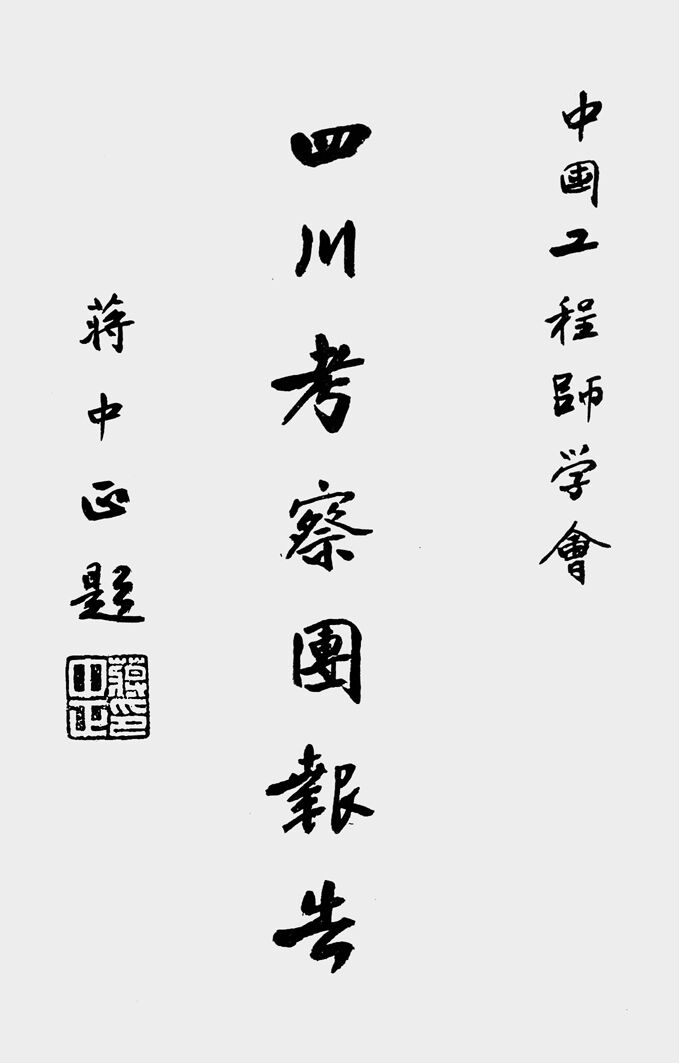 中國工程師学會
四川考察團報告
蔣中正題
蔣中正印